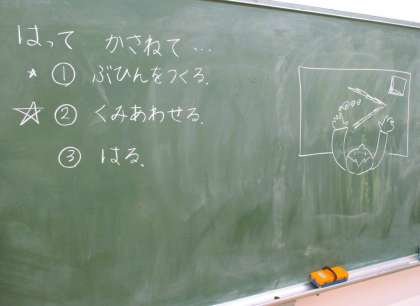 はって かさねて…
★ ① ぶひんをつくる.
★ ② くみあわせる.
③ はる.